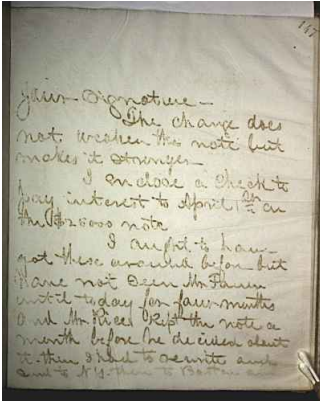 147
your Signature -
The change does
not weaken the note but
makes it stronger
I enclose a check to
pay interest to April 1st on
the $25000 note
I aught to have
got these around before but
have not seen Mr
until today for four months
and Mr Rices kept the note a
month before he decided about
it. then I had to rewrite and
send to N.Y. then to Boston